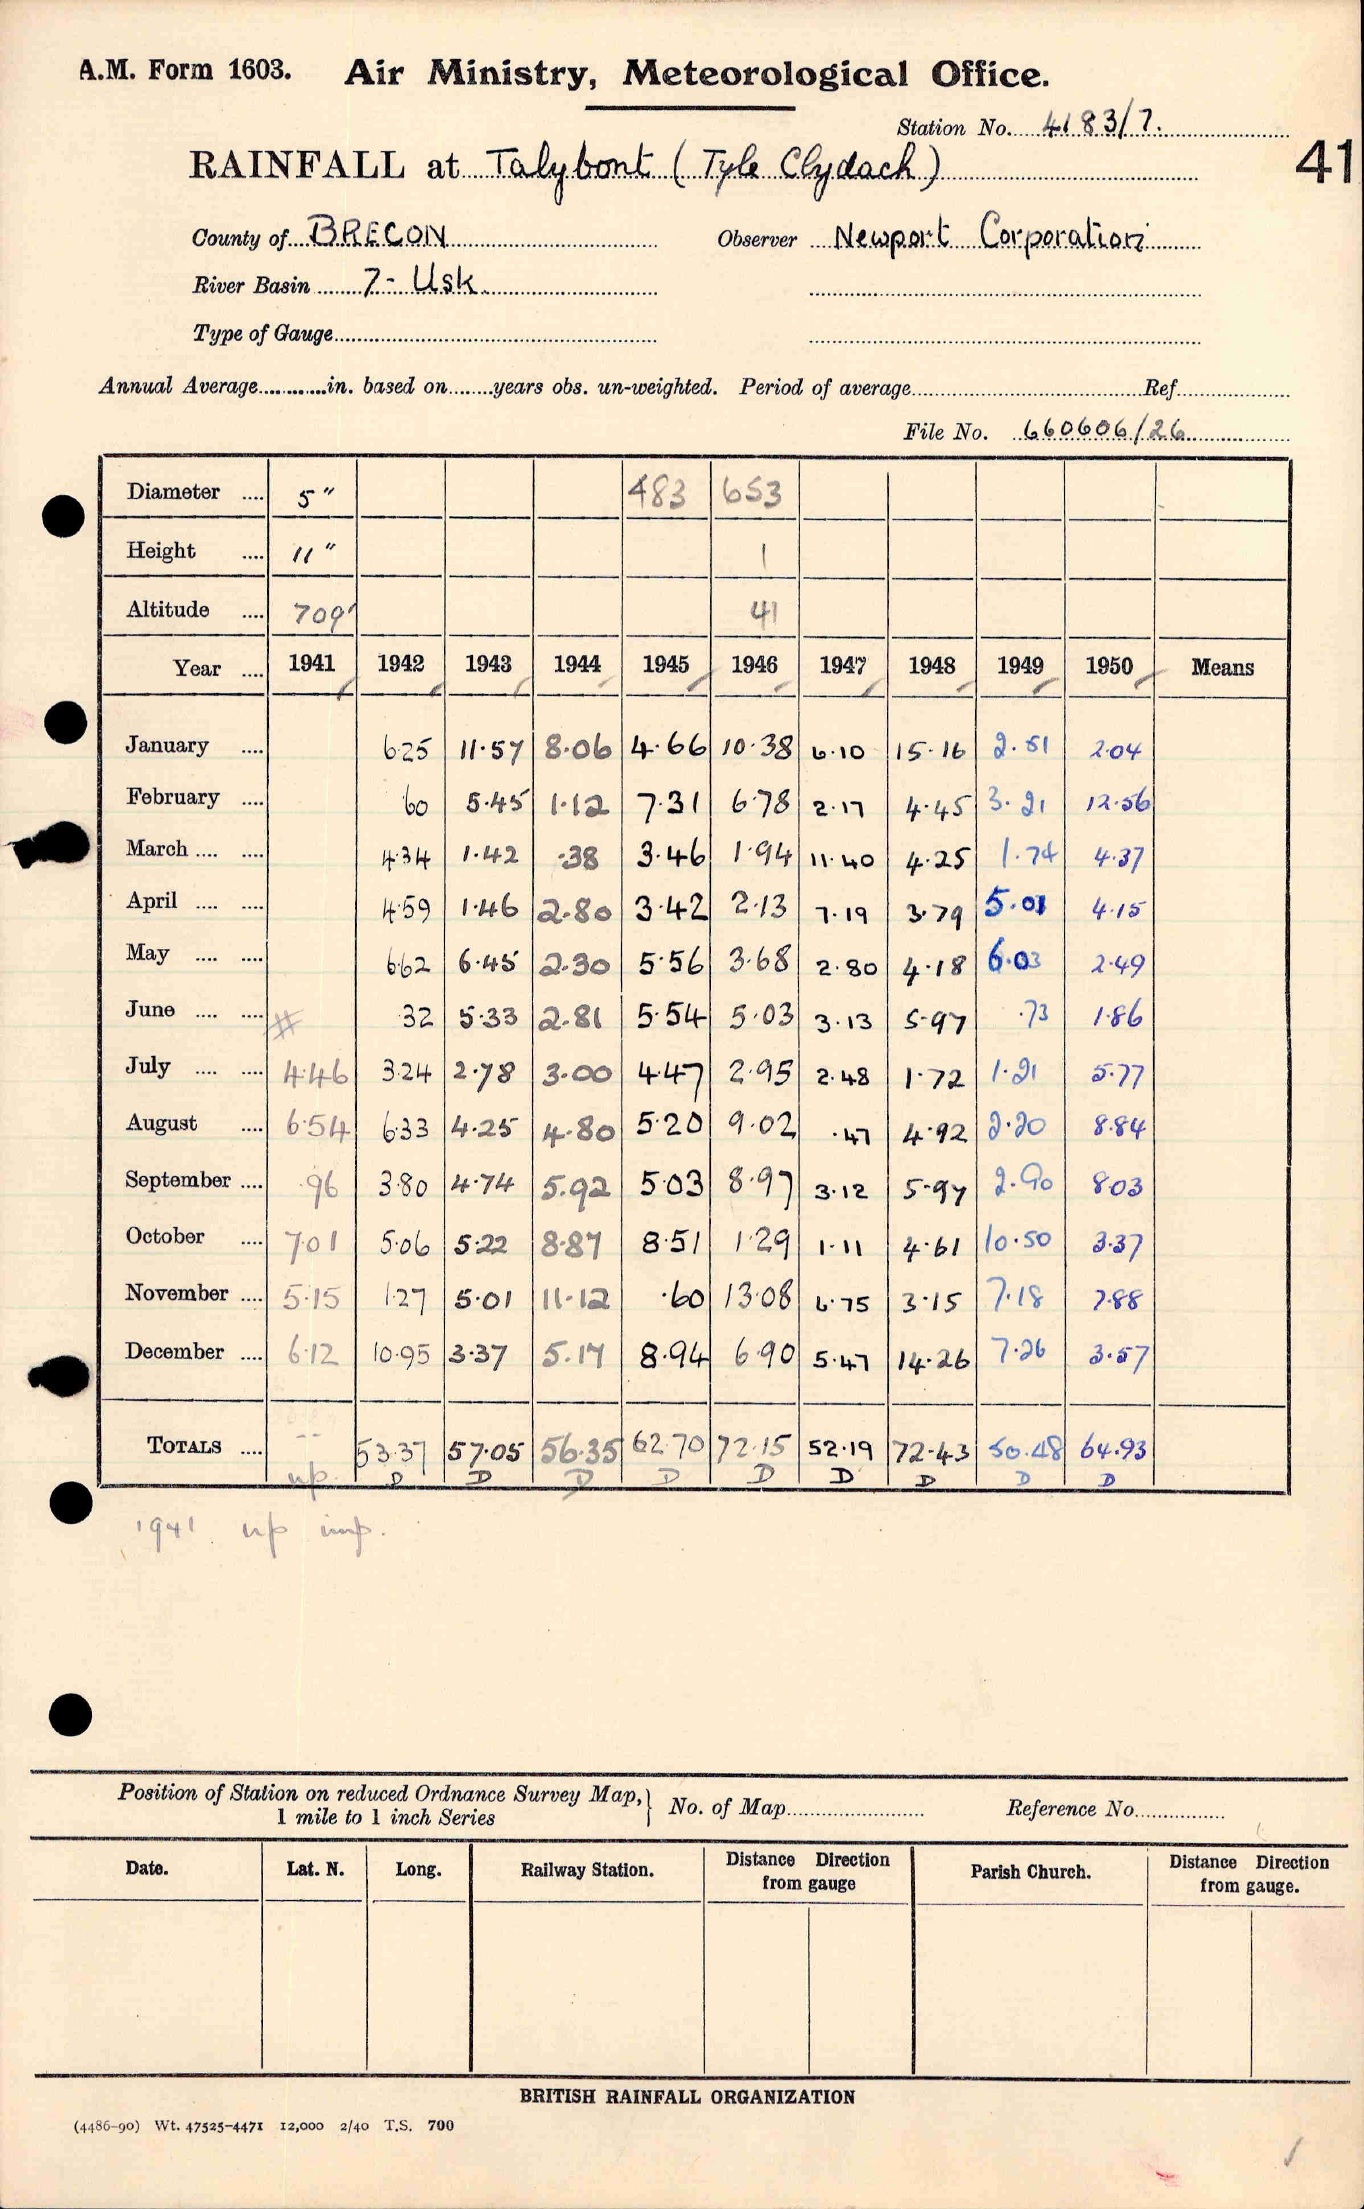 A.M. Form 1603. Air Ministry, Meteorological Office.
Station No. 4183/7.
41
RAINFALL at Talybont (Tyle Clydach)
County of BRECON Observer Newport Corporation
River Basin 7 - Usk
Type of Gauge
Annual Average in. based on years obs. un-weighted. Period of average Ref
File No. 660606/26
Diameter .... 5" 483 653
Height .... 11" 1
Altitude .... 709' 41
Year .... 1941 1942 1943 1944 1945 1946 1947 1948 1949 1950 Means
January .... 6.25 11.57 8.06 4.66 10.38 6.10 15.16 2.51 2.04
February .... .60 5.45 1.12 7.31 6.78 2.17 4.45 3.21 12.56
March .... .... 4.34 1.42 .38 3.46 1.94 11.40 4.25 1.74 4.37
April .... .... 4.59 1.46 2.80 3.42 2.13 7.19 3.79 5.01 4.15
May .... .... 6.62 6.45 2.30 5.56 3.68 2.80 4.18 6.03 2.49
June .... .... # .32 5.33 2.81 5.54 5.03 3.13 5.97 .73 1.86
July .... .... 4.46 3.24 2.78 3.00 4.47 2.95 2.48 1.72 1.21 5.77
August .... 6.54 6.33 4.25 4.80 5.20 9.02 .47 4.92 2.20 8.84
September .... .96 3.80 4.74 5.92 5.03 8.97 3.12 5.97 2.90 8.03
October .... 7.01 5.06 5.22 8.87 8.51 1.29 1.11 4.61 10.50 3.37
November .... 5.15 1.27 5.01 11.12 .60 13.08 6.75 3.15 7.18 7.88
December .... 6.12 10.95 3.37 5.17 8.94 6.90 5.47 14.26 7.26 3.57
TOTALS .... -- 53.37 57.05 56.35 62.70 72.15 52.19 72.43 50.48 64.93
up. D D D D D D D D D
1941 up imp.
Position of Station on reduced Ordnance Survey Map, 1 mile to 1 inch Series } No. of Map Reference No.
Date. Lat. N. Long. Railway Station. Distance Direction from gauge Parish Church. Distance Direction from gauge.
BRITISH RAINFALL ORGANIZATION
(4486-90) Wt. 47525-4471 12,000 2/40 T.S. 700